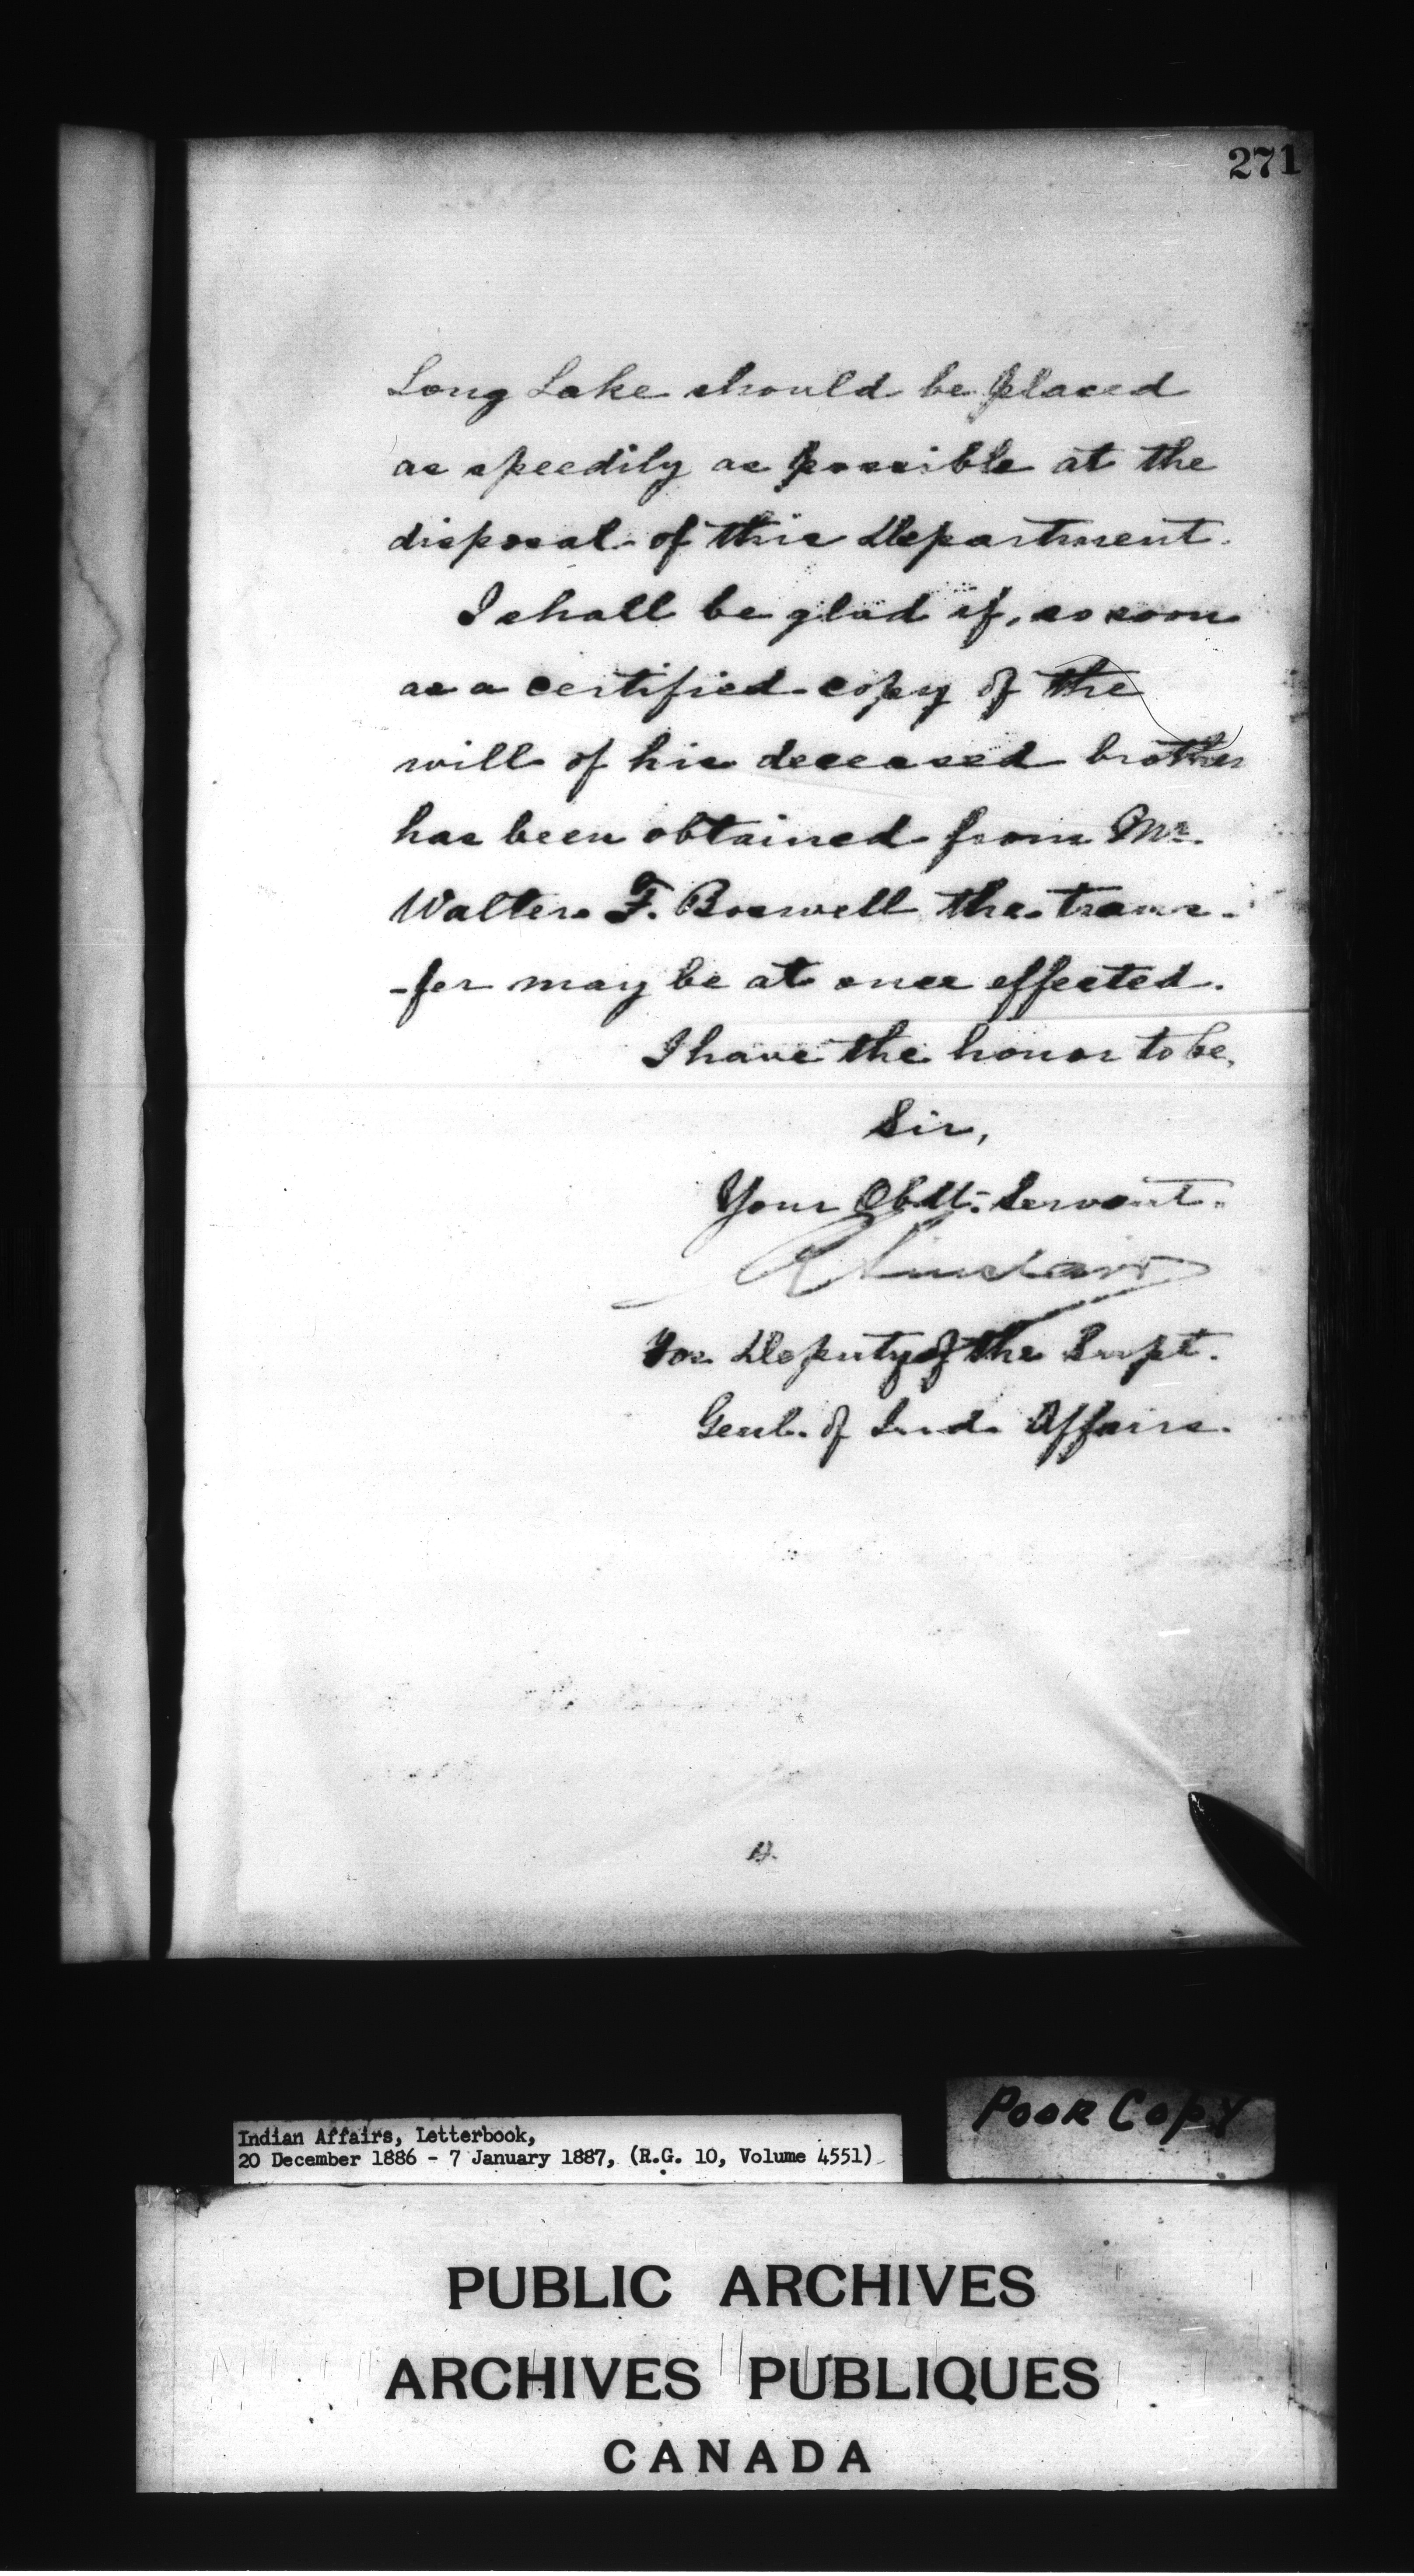 271
Long Lake should be placed
as speedily as possible at the
disposal of this Department.
I shall be glad if, so soon
as a certified copy of the
will of his deceased brother
has been obtained from Mr.
Walter F. Boswell the trans-
-fer may be at once effected.
I have the honor to be,
Sir,
Your Obdt. Servant.
R Sinclair
For Deputy of the Supt.
Genl. of Ind. Affairs.
Poor Copy
Indian Affairs, Letterbook,
20 December 1886 - 7 January 1887, (R.G. 10, Volume 4551)
PUBLIC ARCHIVES
ARCHIVES PUBLIQUES
CANADA